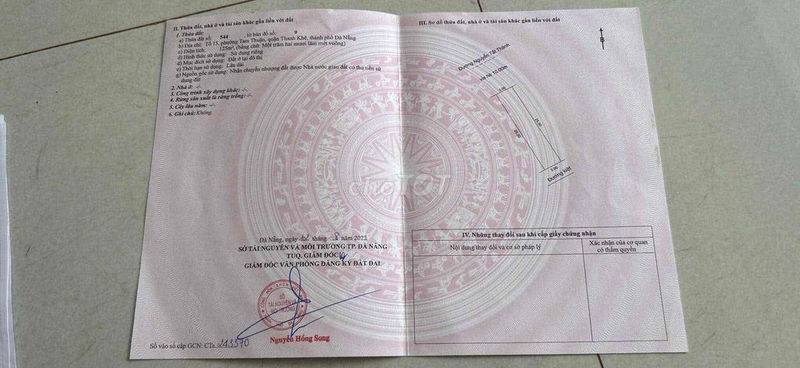 II. Thửa đất, nhà ở và tài sản khác gắn liền với đất
1. Thửa đất:
a) Thửa đất số: 544 tờ bản đồ số: 9
b) Địa chỉ: Tổ 15, phường Tam Thuận, quận Thanh Khê, thành phố Đà Nẵng
c) Diện tích: 125m², (bằng chữ: Một trăm hai mươi lăm mét vuông)
d) Hình thức sử dụng: Sử dụng riêng
đ) Mục đích sử dụng: Đất ở tại đô thị
e) Thời hạn sử dụng: Lâu dài
g) Nguồn gốc sử dụng: Nhận chuyển nhượng đất được Nhà nước giao đất có thu tiền sử
dụng đất
2. Nhà ở: -/-
3. Công trình xây dựng khác: -/-
4. Rừng sản xuất là rừng trồng: -/-
5. Cây lâu năm: -/-
6. Ghi chú: Không.
Đà Nẵng, ngày tháng 8 năm 2022
SỞ TÀI NGUYÊN VÀ MÔI TRƯỜNG TP. ĐÀ NẴNG
TUQ. GIÁM ĐỐC
GIÁM ĐỐC VĂN PHÒNG ĐĂNG KÝ ĐẤT ĐAI
SỞ
TÀI NGUYÊN VÀ
MÔI TRƯỜNG
Nguyễn Hồng Song
Số vào sổ cấp GCN: CTs
III. Sơ đồ thửa đất, nhà ở và tài sản khác gắn liền với đất
B
Đường Nguyễn Tất Thành
Vỉa hè 10.00m
5.00
25.00
25.00
5.00
Đường kiệt
chợTỐT
IV. Những thay đổi sau khi cấp giấy chứng nhận
Nội dung thay đổi và cơ sở pháp lý
Xác nhận của cơ quan
có thẩm quyền